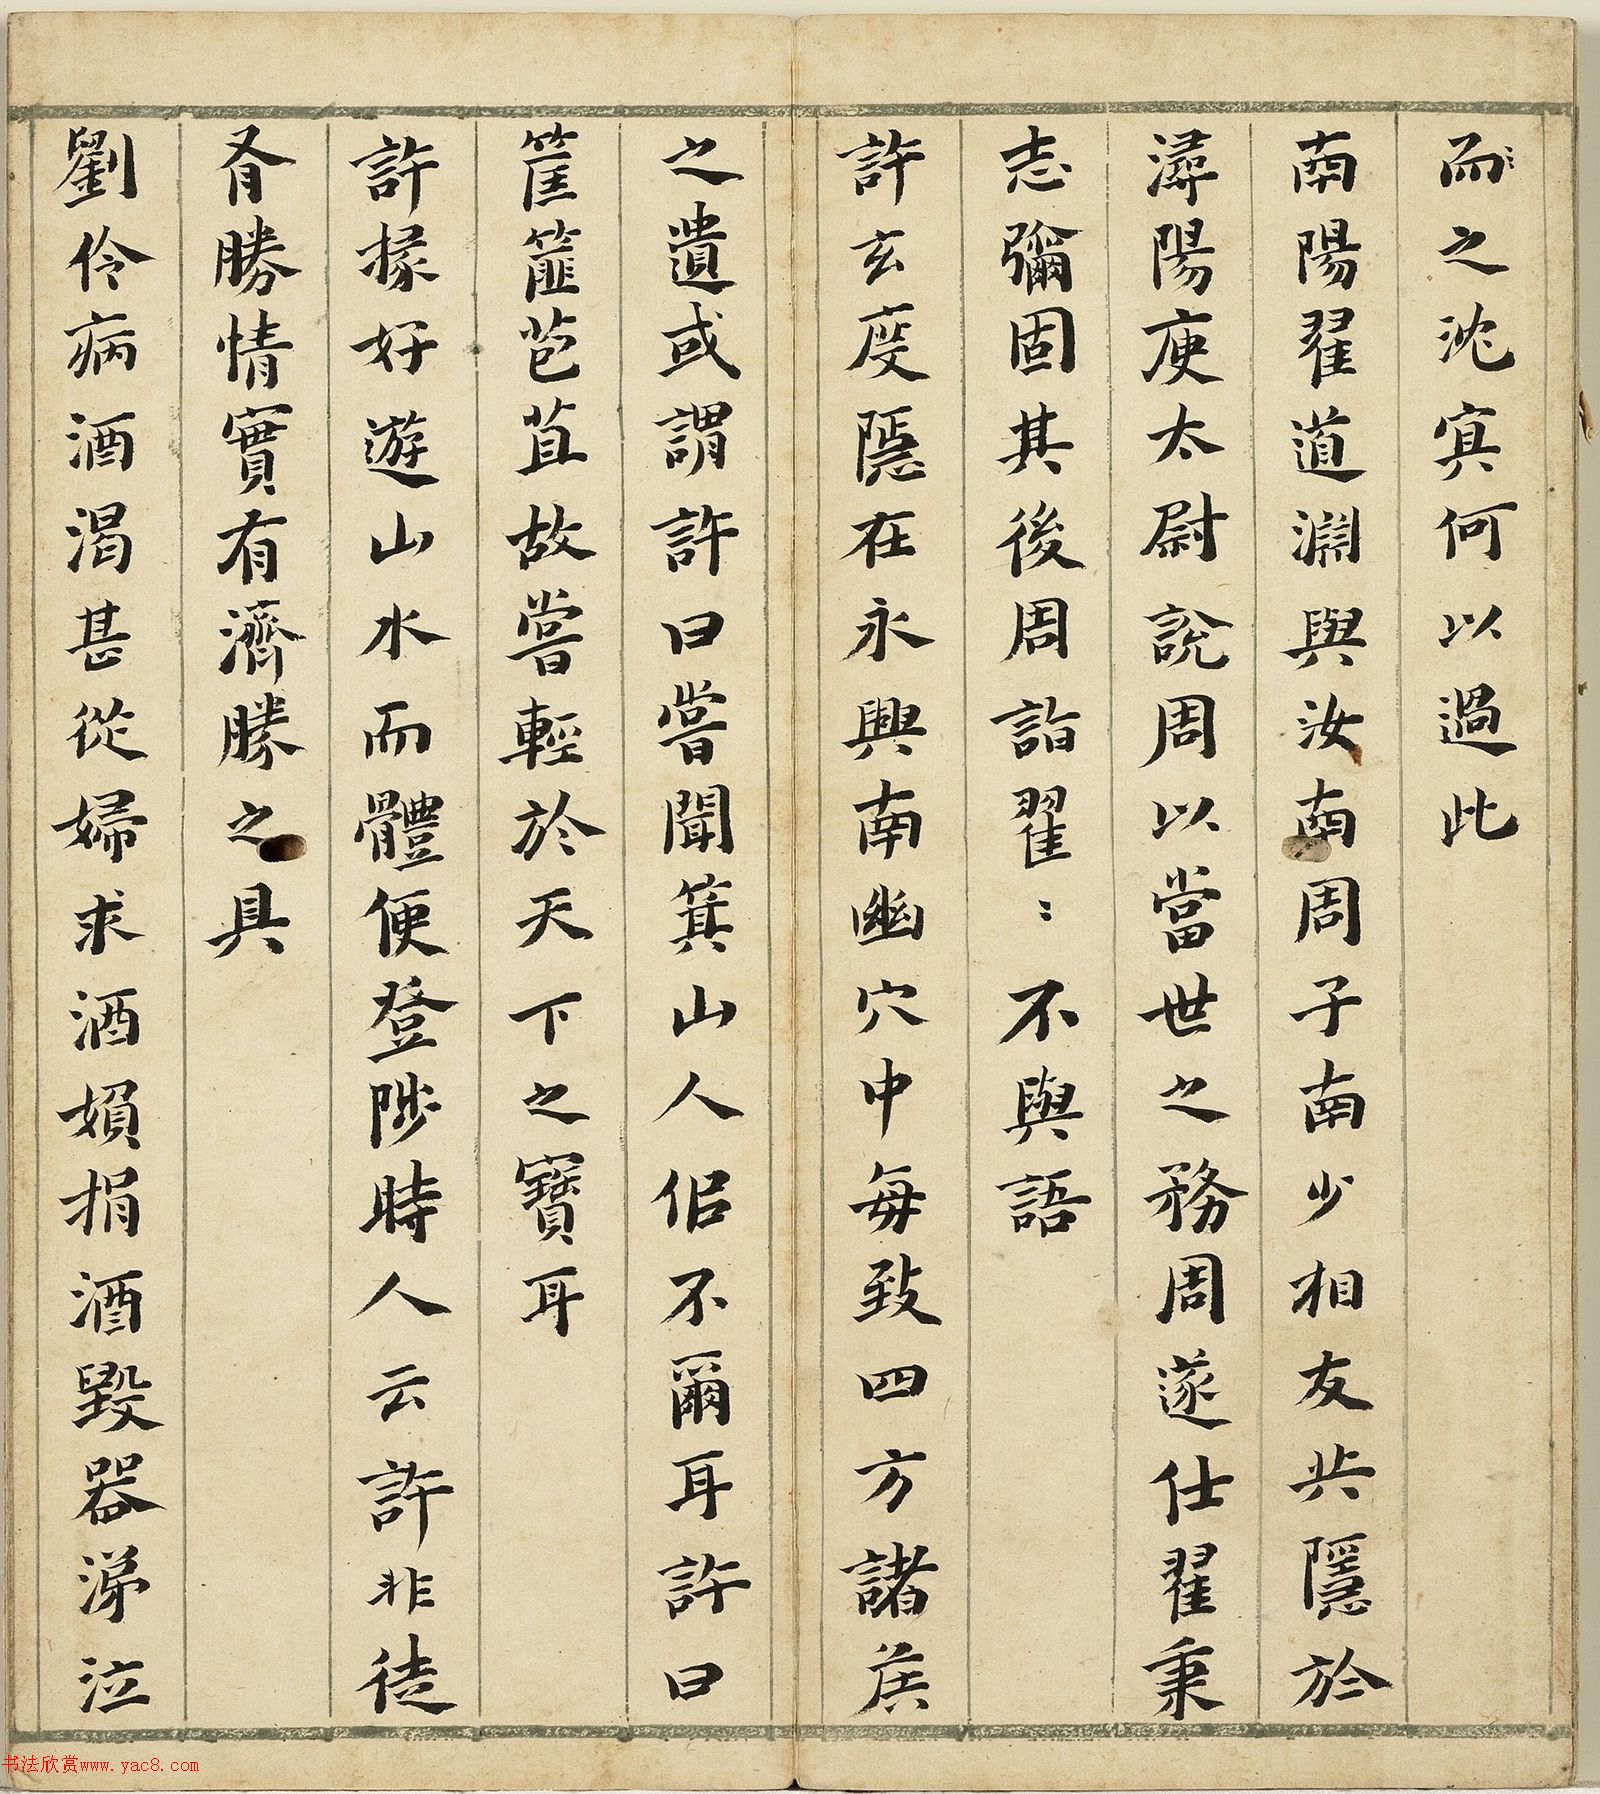 而〻之沈㝠何以過此
南陽翟道淵與汝南周子南少相友共隱於
潯陽庾太尉說周以當世之務周遂仕翟秉
志彌固其後周詣翟〻不與語
許玄度隱在永興南幽穴中每致四方諸侯
之遺或謂許曰嘗聞箕山人佀不爾耳許曰
筐篚苞苴故嘗輕於天下之寶耳
許掾好遊山水而體便登陟時人云許非徒
有勝情實有濟勝之具
劉伶病酒渴甚從婦求酒婦捐酒毀器涕泣
书法欣赏www.yac8.com